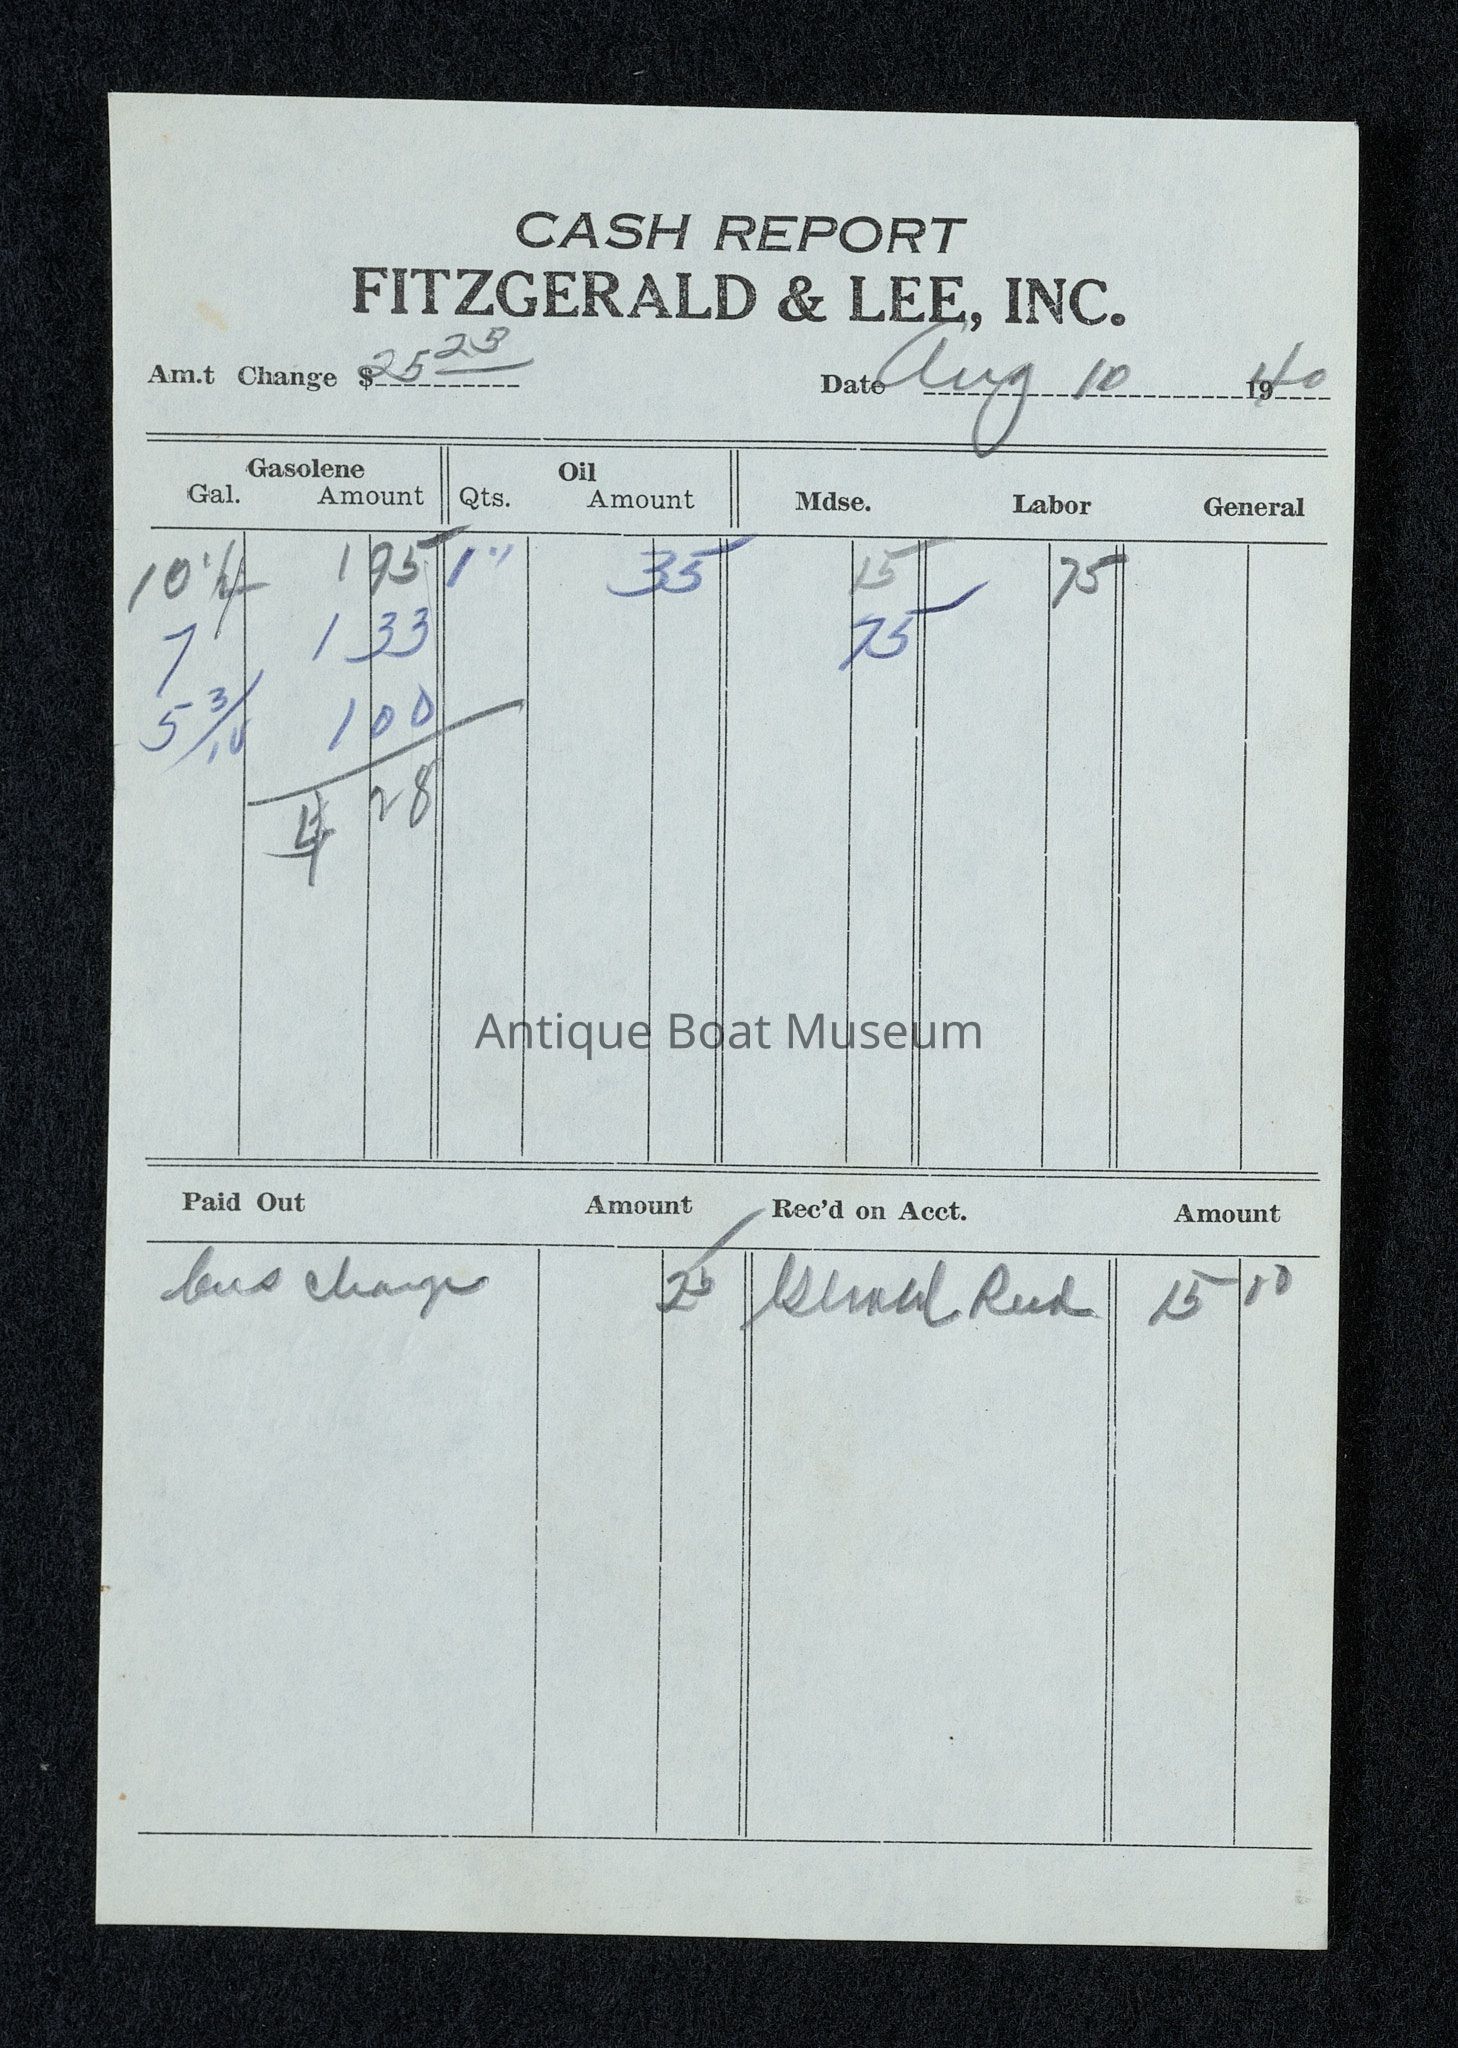 CASH REPORT
FITZGERALD & LEE, INC.
Am.t Change $ 25 25
Date Aug 10 1940
Gasolene Oil
Gal. Amount Qts. Amount Mdse. Labor General
10 1/4 1 95 1 35 15 75
7 1 33 75
5 3/10 1 00
4 28
Antique Boat Museum
Paid Out Amount Rec'd on Acct. Amount
bus change 25 Reed 15 00